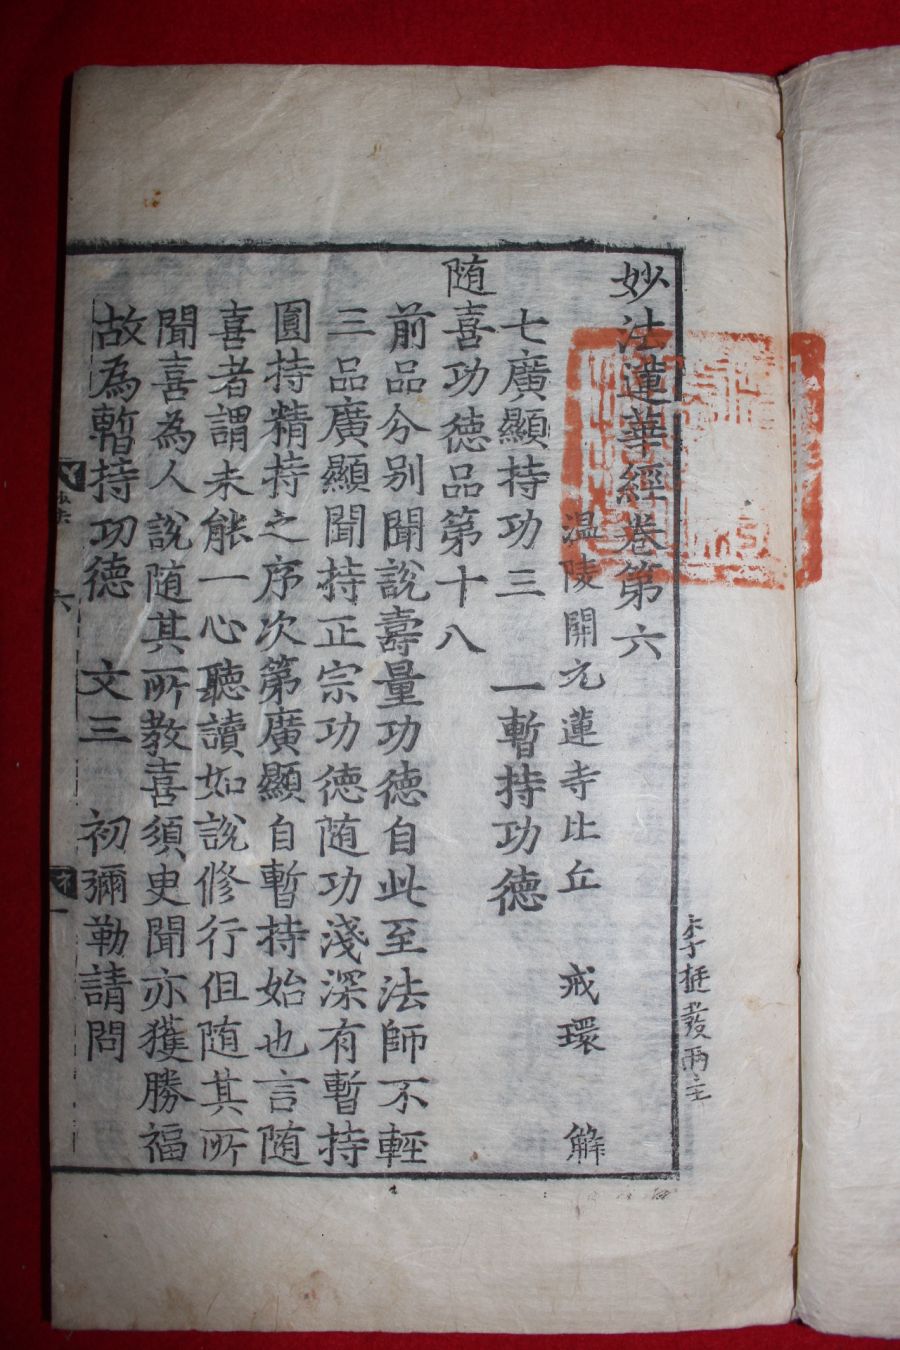 妙法蓮華經卷第六
温陵開元蓮寺比丘 戒環 解
七廣顯持功三 一暫持功德
随喜功德品第十八
前品分别聞說壽量功德自此至法師不輕
三品廣顯聞持正宗功德随功淺深有暫持
圓持精持之序次第廣顯自暫持始也言随
喜者謂未能一心聽讀如說修行但随其所
聞喜為人說随其所教喜須㬰聞亦獲勝福
故為暫持功德 文三 初彌勒請問
六
一